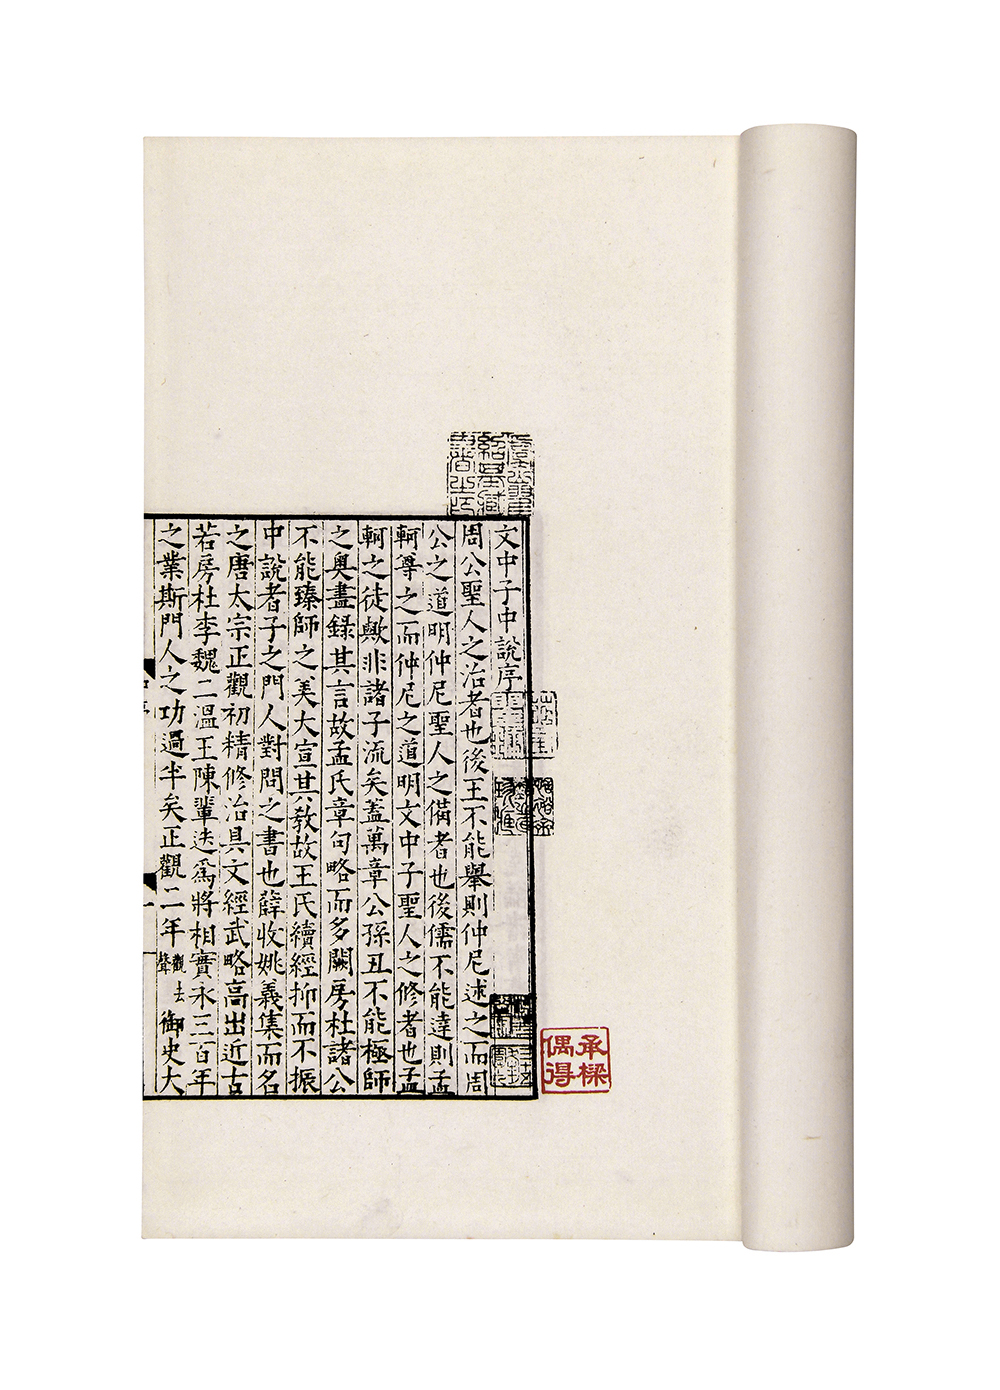 文中子中說序
周公聖人之治者也後王不能舉則仲尼述之而周
公之道明仲尼聖人之備者也後儒不能達則孟
軻尊之而仲尼之道明文中子聖人之修者也孟
軻之徒歟非諸子流矣蓋萬章公孫丑不能極師
之奥盡錄其言故孟氏章句略而多闕房杜諸公
不能臻師之美大宣其敎故王氏續經抑而不振
中說者子之門人對問之書也薛收姚義集而名
之唐太宗正觀初精修治具文經武略高出近古
若房杜李魏二溫王陳輩迭爲將相實永三百年
之業斯門人之功過半矣正觀二年觀去聲御史大
承樑
偶得